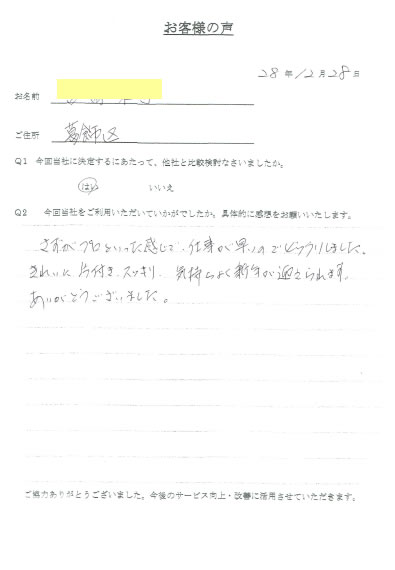 お客様の声
28年12月28日
お名前
ご住所 葛飾区
Q1 今回当社に決定するにあたって、他社と比較検討なさいましたか。
はい いいえ
Q2 今回当社をご利用いただいていかがでしたか。具体的に感想をお願いいたします。
さすがプロといった感じで、仕事が早いのでビックリしました。
きれいに片付き、スッキリ、気持ちよく新年が迎えられます。
ありがとうございました。
ご協力ありがとうございました。今後のサービス向上・改善に活用させていただきます。